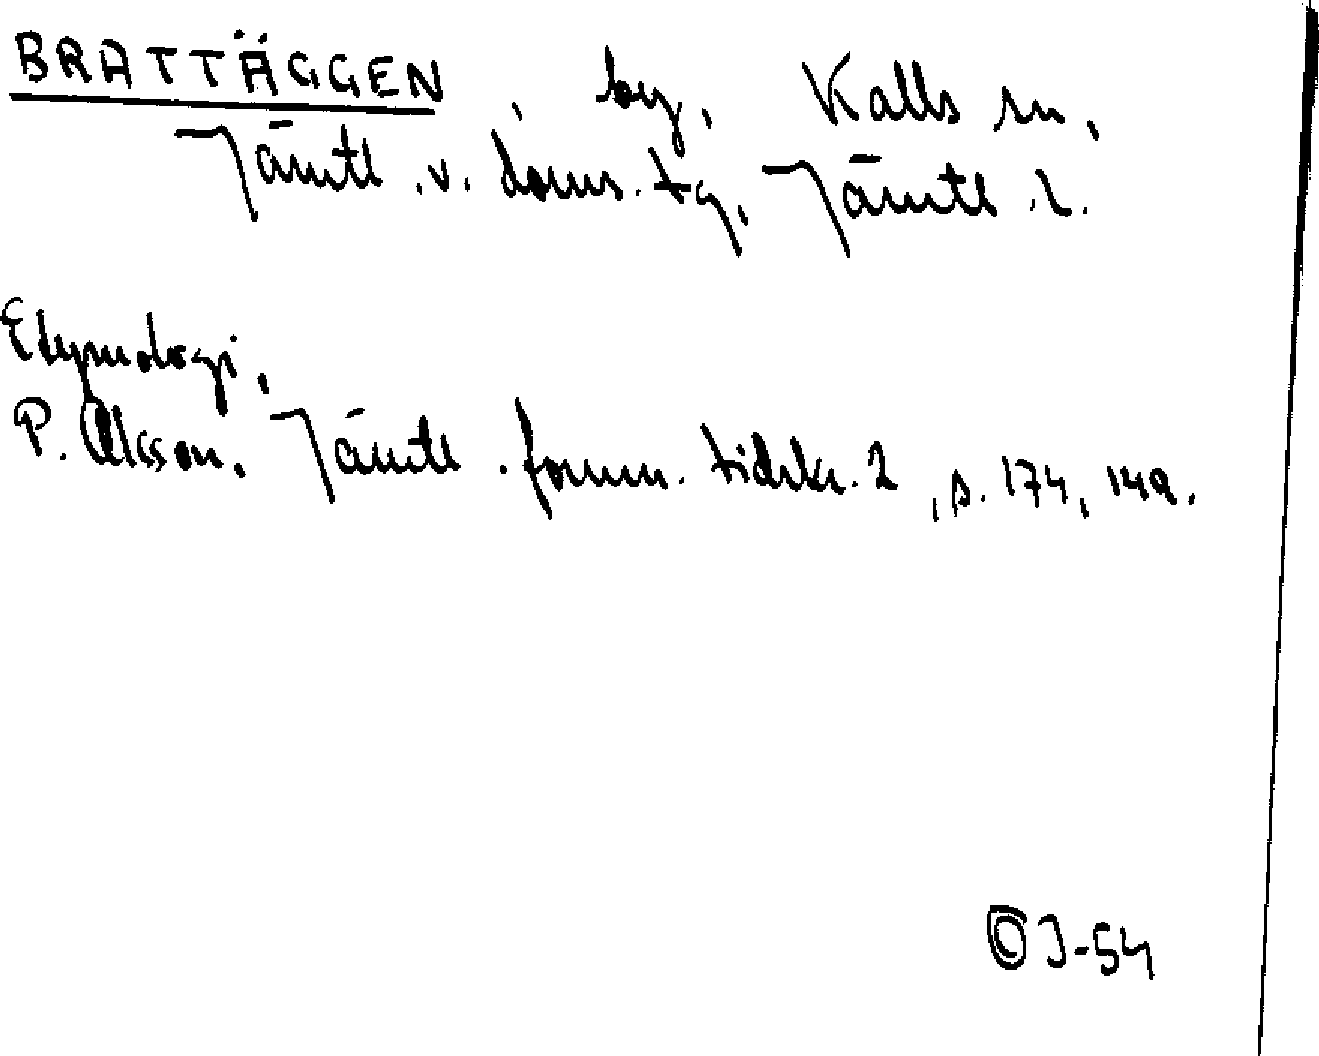 BRATTÄGGEN, by, Kalls sn,
Jämtl. v. doms. tg, Jämtl. l.
Etymologi,
P. Olsson, Jämtl. fornm. tidskr. 2, s. 174, 149.
© J-54